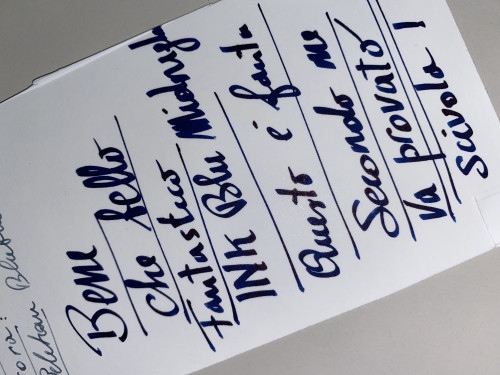 Bene
che bello
Fantastico Midnight
INK Blu
Questo è fanta
Secondo me
Va provato
Scivola !
ora:
Pelikan Blu